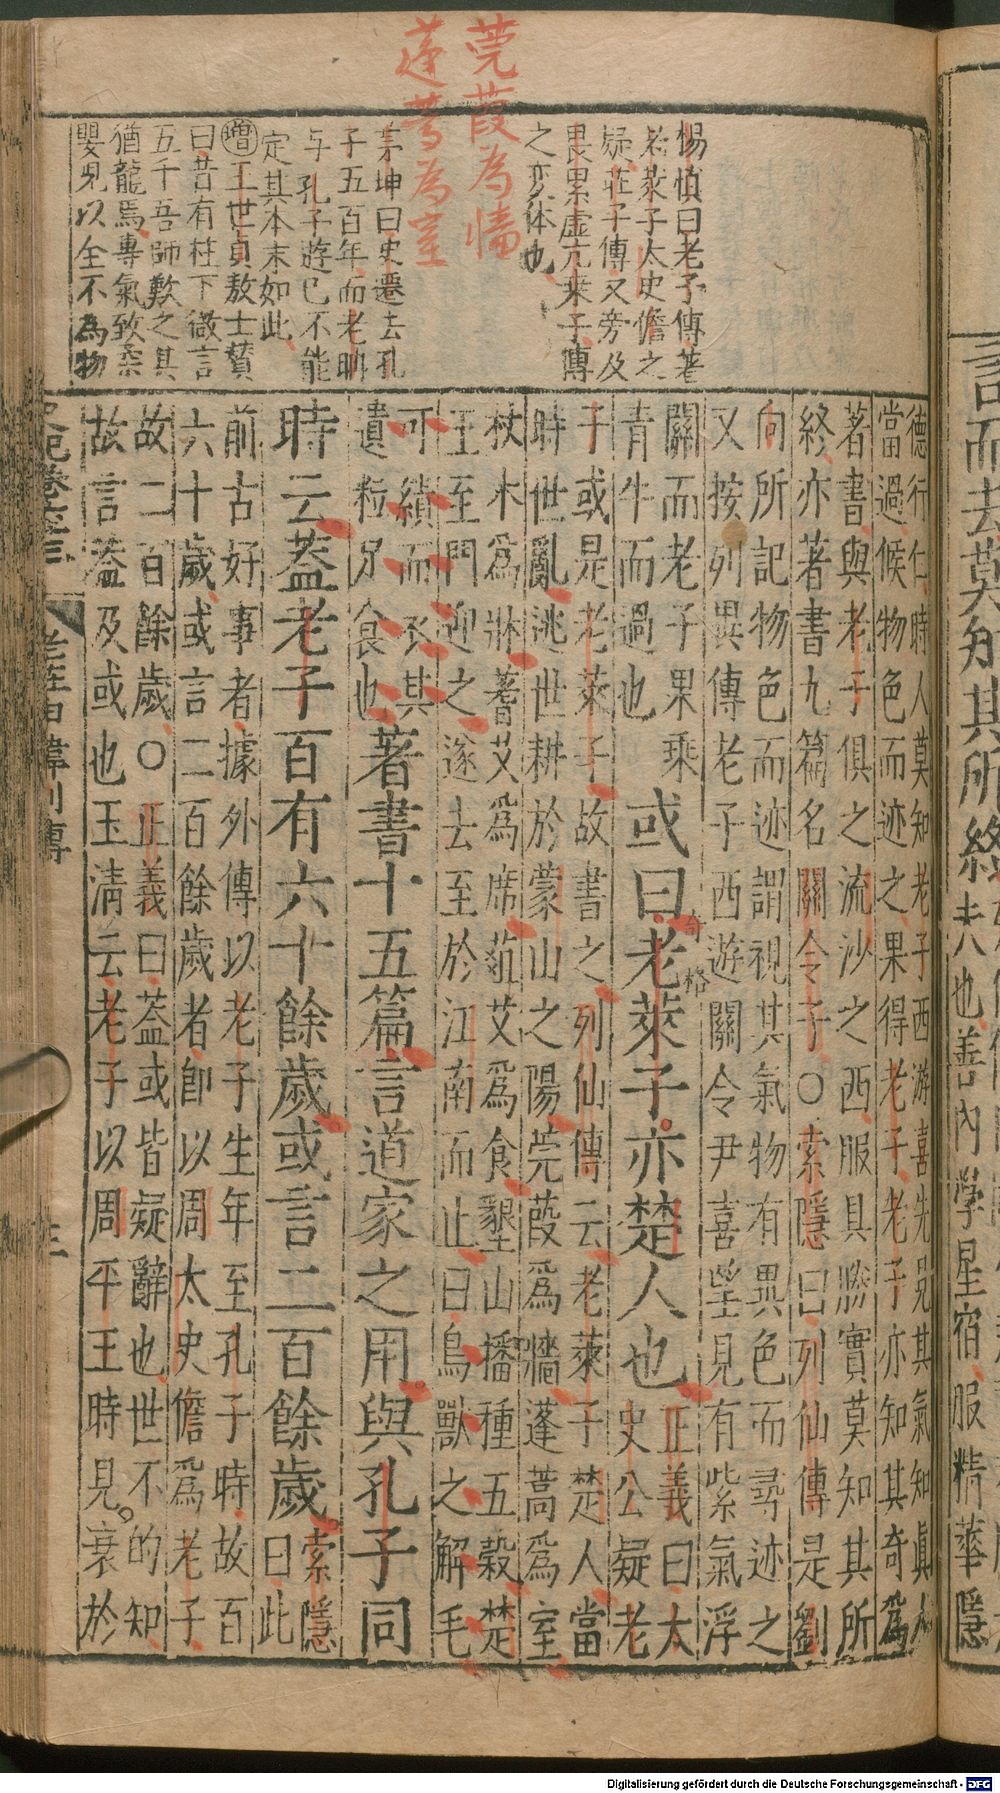 莞葭為墻
蓬蒿為室
楊慎曰老子傳著
老萊子太史儋之
疑莊子傳又旁及
畏累虛亢桑子傳
之变体也
茅坤曰史遷去孔
子五百年而老聃
与孔子遊已不能
定其本末如此
增王世貞敖士贊
曰昔有柱下微言
五千吾師歎之其
猶龍焉專氣致柔
嬰兒以全不為物
德行仁時人莫知老子西游喜先見其氣知真人
當過候物色而迹之果得老子老子亦知其奇為
著書與老子俱之流沙之西服具勝實莫知其所
終亦著書九篇名關令子○索隱曰列仙傳是劉
向所記物色而迹謂視其氣物有異色而尋迹之
又按列異傳老子西遊關令尹喜望見有紫氣浮
關而老子果乘
青牛而過也
或曰老萊子亦楚人也
奇格
正義曰太
史公疑老
子或是老萊子故書之列仙傳云老萊子楚人當
時世亂逃世耕於蒙山之陽莞葭爲墻蓬蒿爲室
杖木爲牀蓍艾爲席葅艾爲食墾山播種五穀楚
王至門迎之遂去至於江南而止曰鳥獸之解毛
可績而衣其
遺粒足食也
著書十五篇言道家之用與孔子同
時云蓋老子百有六十餘歲或言二百餘歲
索隱
曰此
前古好事者據外傳以老子生年至孔子時故百
六十歲或言二百餘歲者卽以周太史儋爲老子
故二百餘歲○正義曰蓋或皆疑辭也世不的知
故言蓋及或也玉清云老子以周平王時見衰於
史記卷六十三
老莊申韓列傳
三
言而去莫知其所終
夫也善內学星宿服精華隱
Digitalisierung gefördert durch die Deutsche Forschungsgemeinschaft - DFG